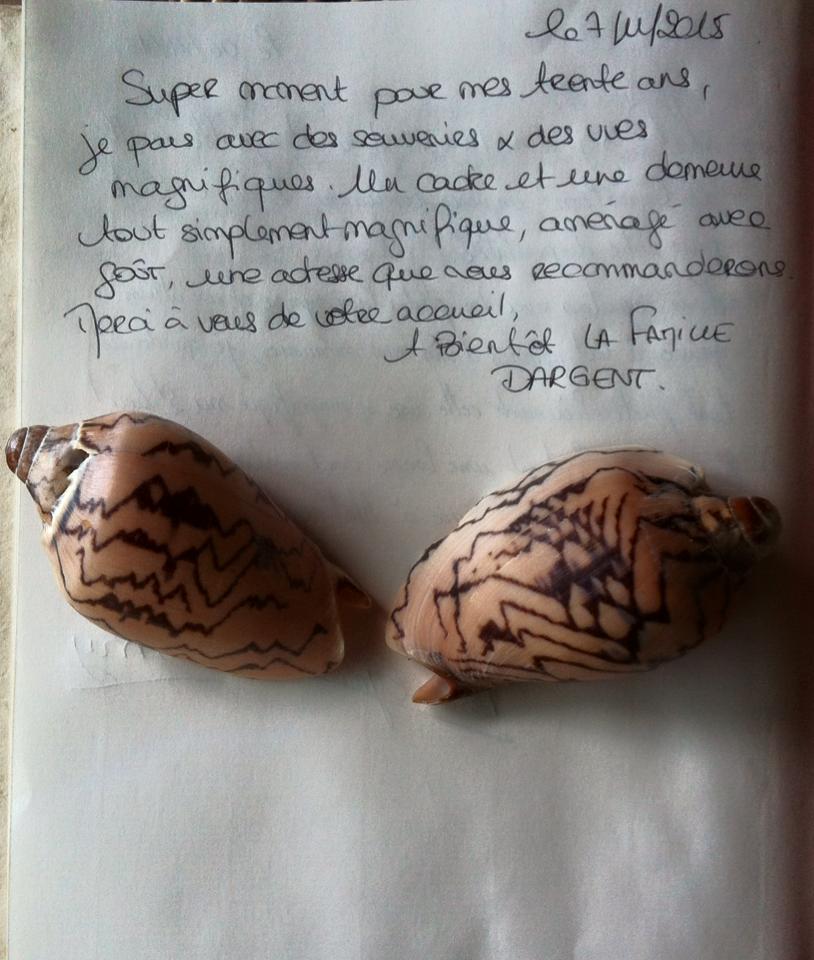 le 7/11/2015
Super moment pour mes trente ans,
je pars avec des souvenirs & des vues
magnifiques. Un cadre et une demeure
tout simplement magnifique, aménagé avec
goût, une adresse que nous recommanderons.
Merci à vous de votre accueil,
A Bientôt LA FAMILLE
DARGENT.